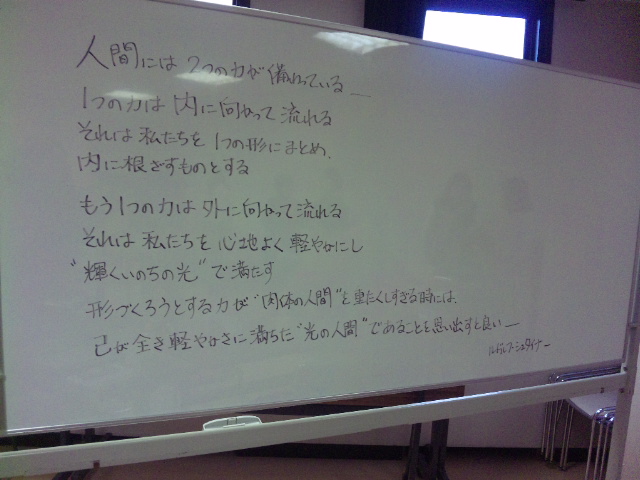 人間には 2つの力が 備わっている—
1つの力は 内に向かって 流れる
それは 私たちを 1つの形に まとめ、
内に根ざすものとする
もう1つの力は 外に向かって 流れる
それは 私たちを 心地よく 軽やかにし
"輝くいのちの光"で満たす
形づくろうとする力が "肉体の人間"を重たくしすぎる時には、
己が全き軽やかさに満ちた"光の人間"であることを思い出すと良い—
ルドルフ・シュタイナー